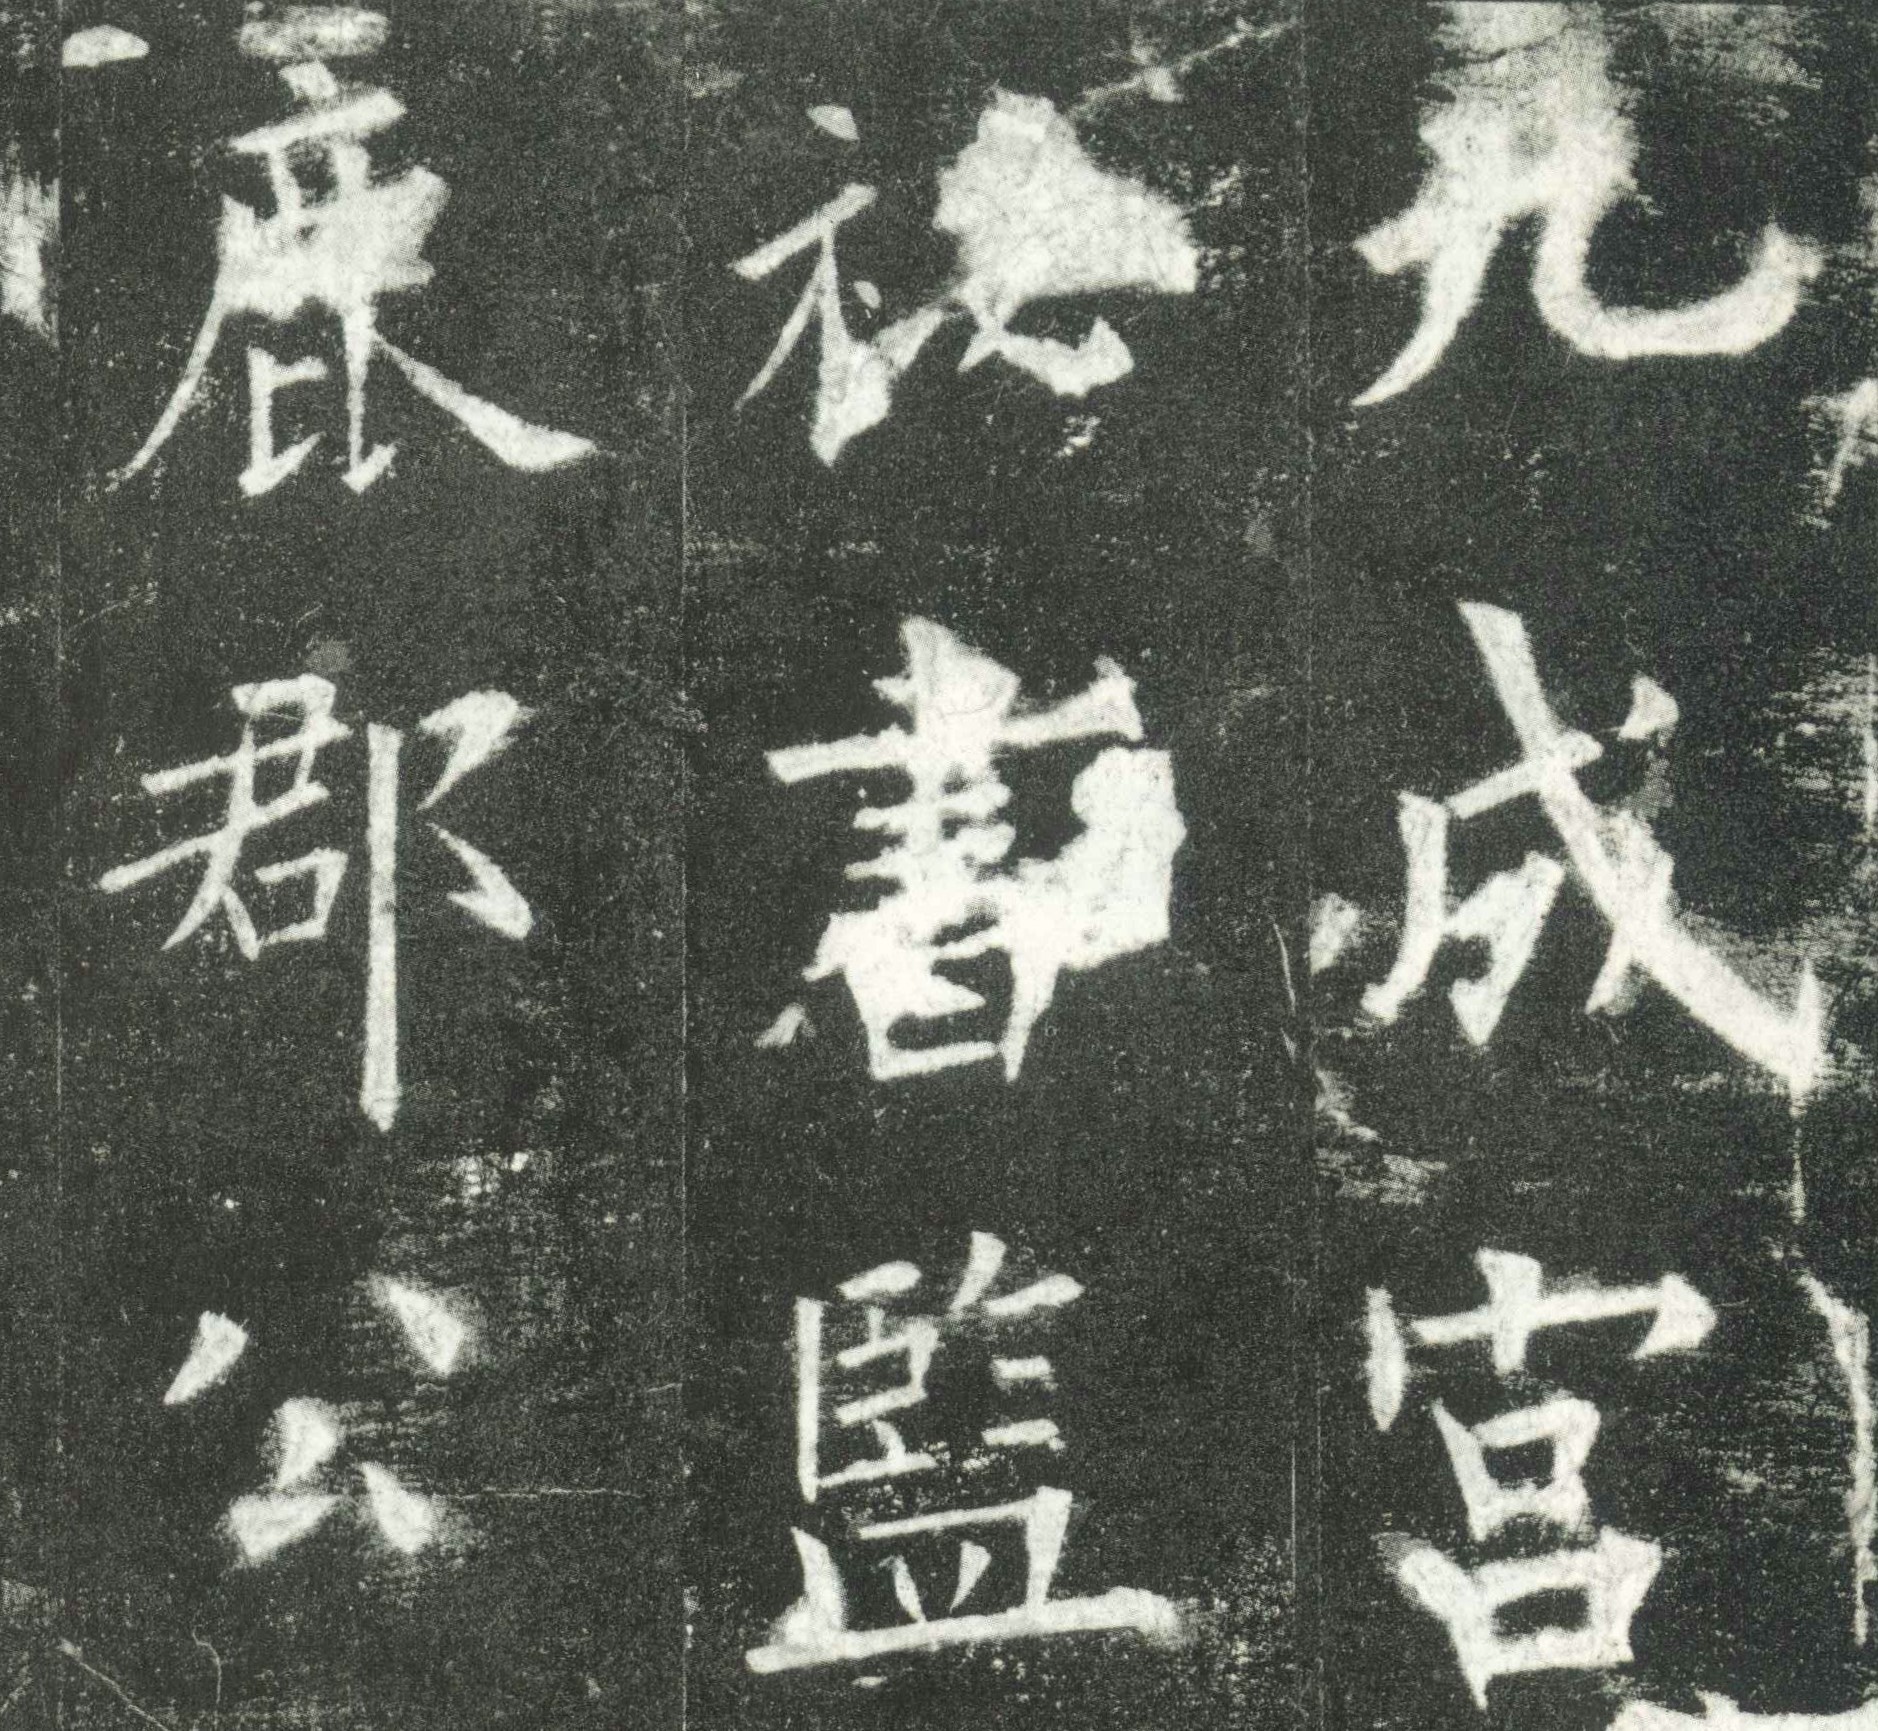 九成宮
祕書監
鹿郡公